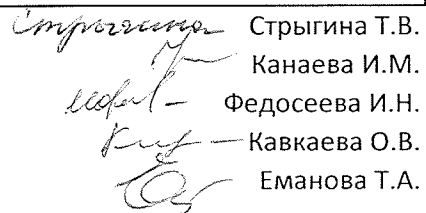 Стрыгина Стрыгина Т.В.
Канаева И.М.
Федосеева И.Н.
Кавкаева О.В.
Еманова Т.А.